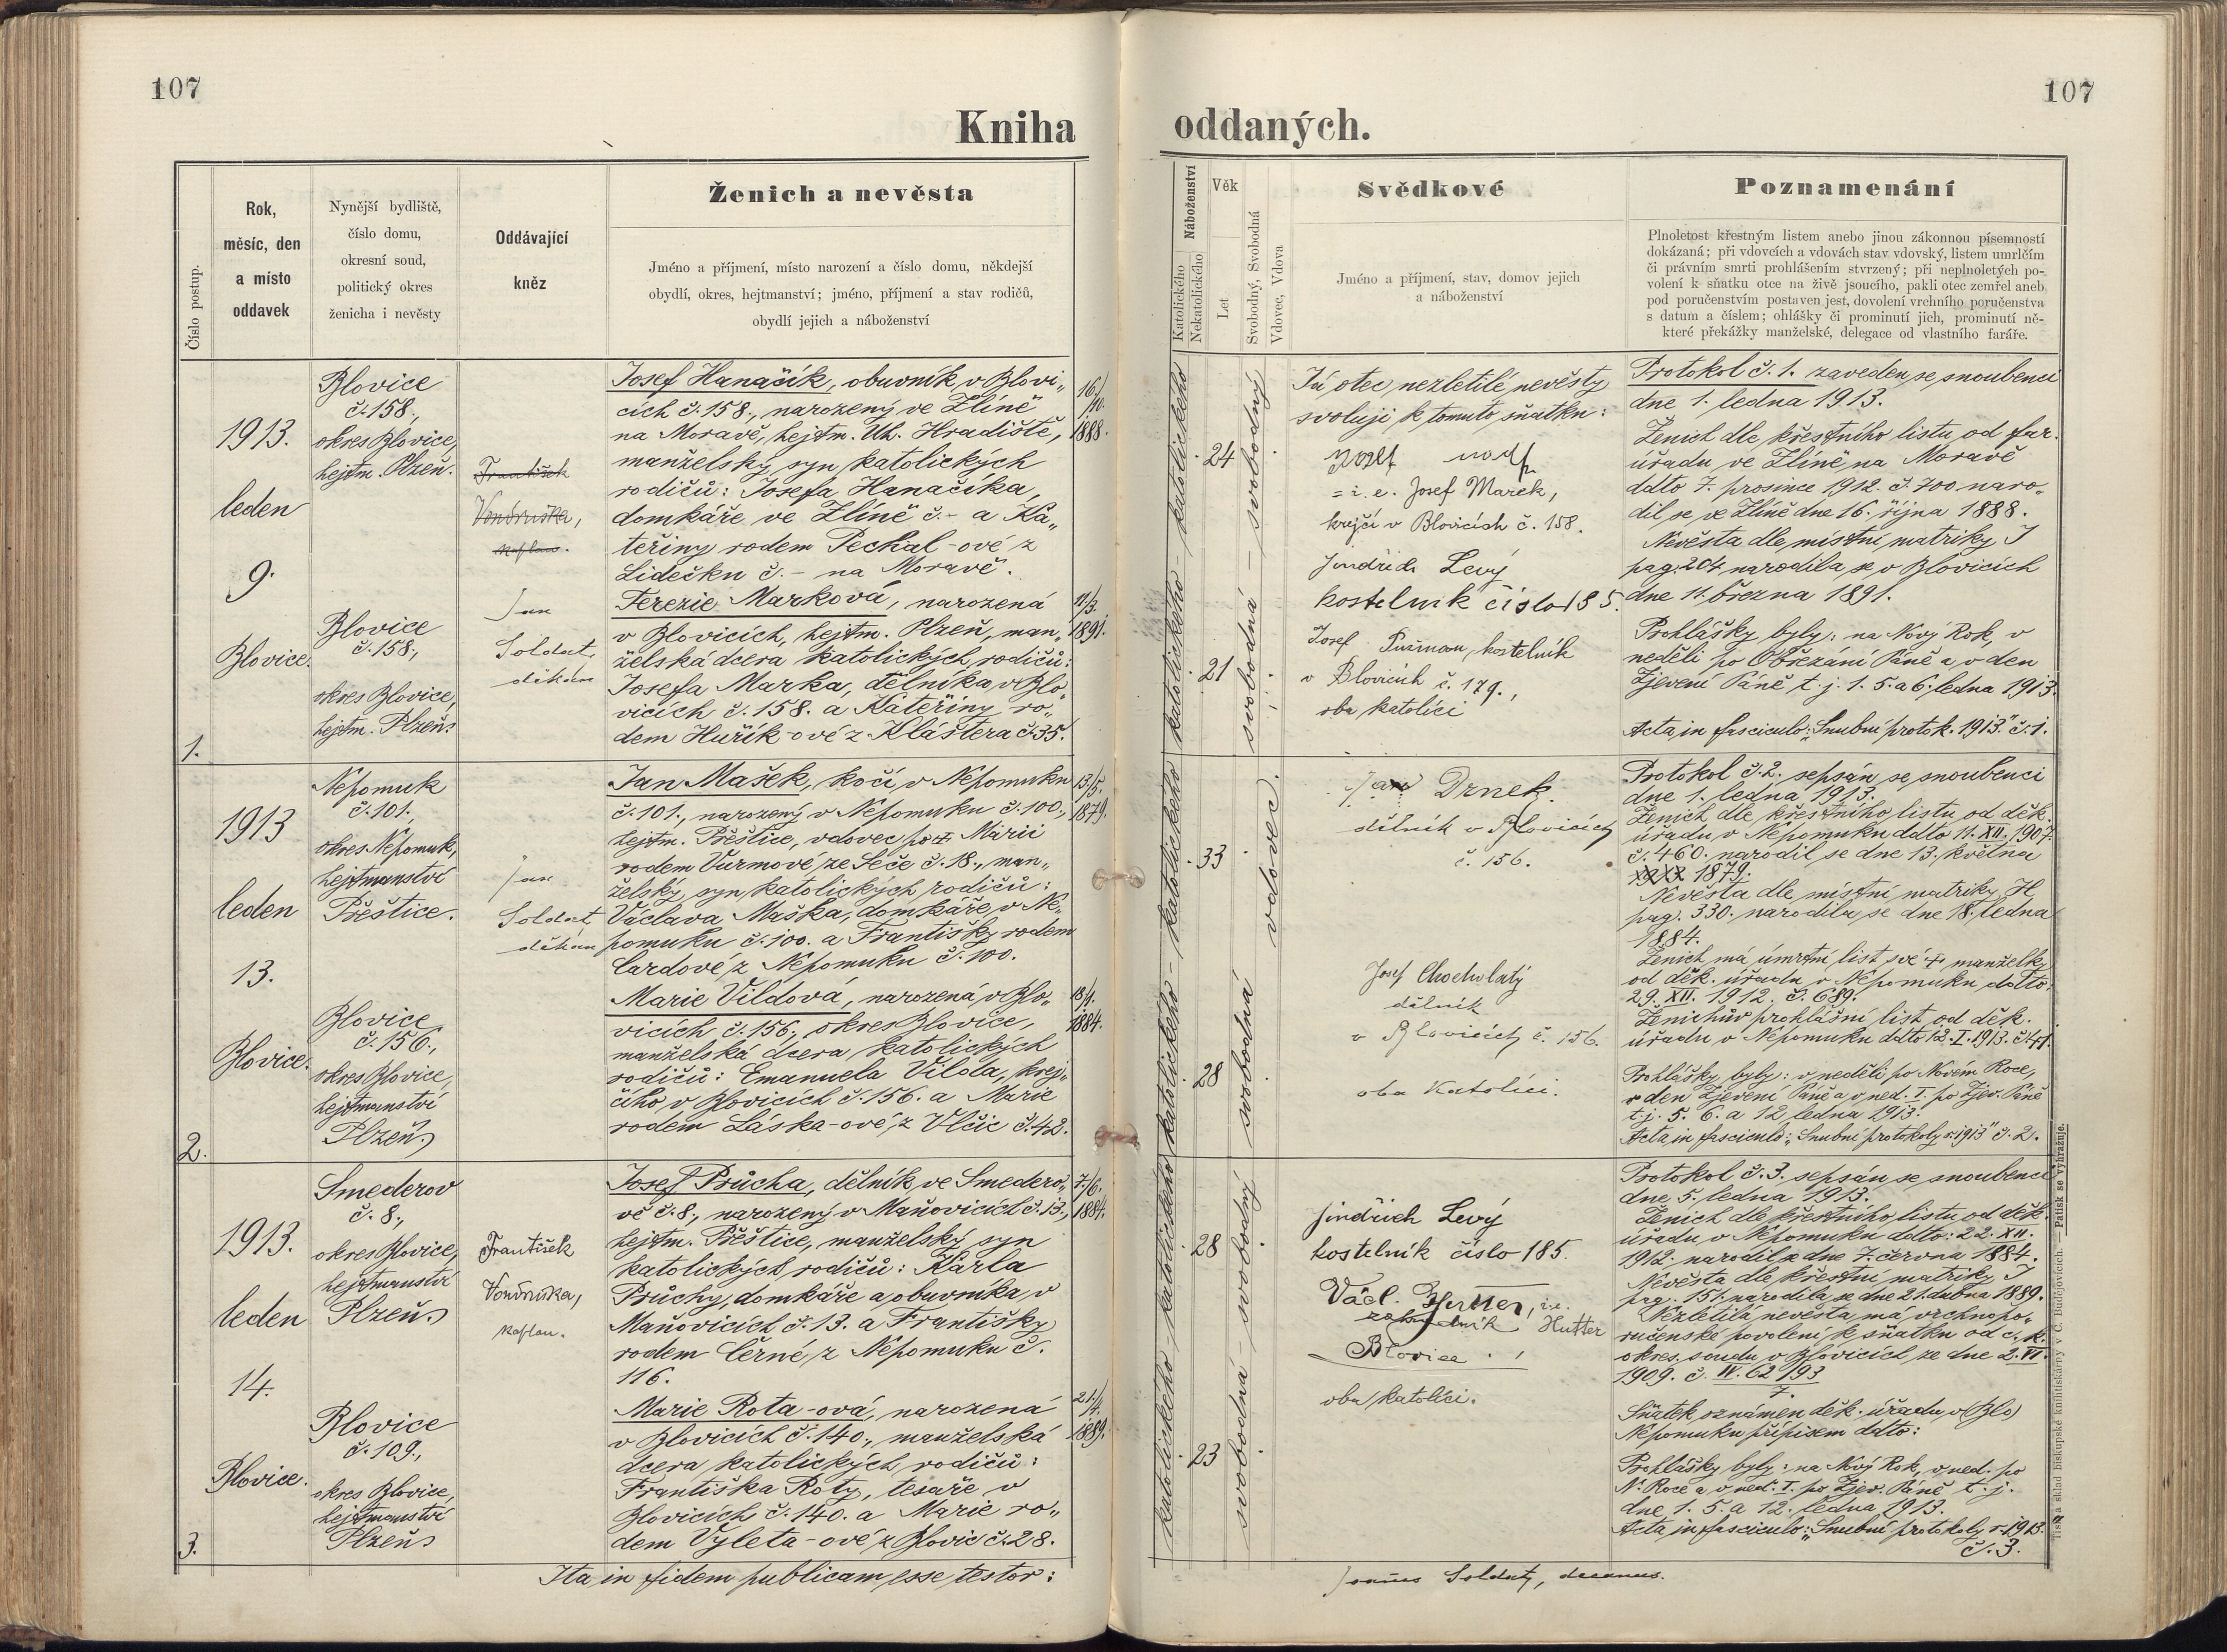 107
107
Kniha
oddaných.
Číslo postup.
Rok,
měsíc, den
a místo
oddavek
Nynější bydliště,
číslo domu,
okresní soud,
politický okres
ženicha i nevěsty
Oddávající
kněz
Ženich a nevěsta
Jméno a příjmení, místo narození a číslo domu, někdejší
obydlí, okres, hejtmanství; jméno, příjmení a stav rodičů,
obydlí jejich a náboženství
Náboženství
Katolického
Nekatolického
Věk
Let
Svobodný, Svobodná
Vdovec, Vdova
Svědkové
Jméno a příjmení, stav, domov jejich
a náboženství
Poznamenání
Plnoletost křestným listem anebo jinou zákonnou písemností
dokázaná; při vdovcích a vdovách stav vdovský, listem umrlčím
či právním smrti prohlášením stvrzený; při neplnoletých po-
volení k sňatku otce na živě jsoucího, pakli otec zemřel aneb
pod poručenstvím postaven jest, dovolení vrchního poručenstva
s datum a číslem; ohlášky či prominutí jich, prominutí ně-
které překážky manželské, delegace od vlastního faráře.
1.
1913.
leden
9.
Blovice.
Blovice
č. 158.,
okres Blovice,
hejtm. Plzeň.
Blovice
č. 158.,
okres Blovice,
hejtm. Plzeň
František
Vondruška,
kaplan.
Jan
Soldat,
děkan
Josef Hanačík, obuvník v Blovi„
cích č. 158., narozený ve Zlíně
na Moravě, hejtm. Uh. Hradiště,
manželský syn katolických
rodičů: Josefa Hanačíka,
domkáře ve Zlíně č. – a Ka„
teřiny rodem Pechal-ové z
Lidečku č. – na Moravě.
16./10.
1888.
Terezie Marková, narozená
v Blovicích, hejtm. Plzeň, man„
želská dcera katolických rodičů:
Josefa Marka, dělníka v Blo„
vicích č. 158. a Kateřiny ro„
dem Huřík-ové z Kláštera č. 35.
11/3.
1891.
katolického – katolického
24
21
svobodný
svobodná
Já otec nezletilé nevěsty
svoluji k tomuto sňatku:
= i. e. Josef Marek,
krejčí v Blovicích č. 158.
Jindřich Levý
kostelník číslo 185.
Josef Pušman, kostelník
v Blovicích č. 179.,
oba katolíci
Protokol č. 1. zaveden se snoubenci
dne 1. ledna 1913.
Ženich dle křestního listu od far.
úřadu ve Zlíně na Moravě
ddto 7. prosince 1912. č. 700. naro„
dil se ve Zlíně dne 16. října 1888.
Nevěsta dle místní matriky I
pag. 204. narodila se v Blovicích
dne 11. března 1891.
Prohlášky byly: na Nový Rok, v
neděli po Obřezání Páně a v den
Zjevení Páně t. j. 1. 5. a 6. ledna 1913.
Acta in fasciculo: „Snubní protok. 1913." č. 1.
2.
1913
leden
13.
Blovice.
Nepomuk
č. 101.,
okres Nepomuk,
hejtmanství
Přeštice.
Blovice
č. 156.,
okres Blovice,
hejtmanství
Plzeň
Jan
Soldat,
děkan
Jan Mašek, kočí v Nepomuku
č. 101., narozený v Nepomuku č. 100.,
hejtm. Přeštice, vdovec po † Marii
rodem Vurmové ze Seče č. 18., man„
želský syn katolických rodičů:
Václava Maška, domkáře v Ne„
pomuku č. 100. a Františky rodem
Cardové z Nepomuku č. 100.
13/5.
1879.
Marie Vildová, narozená v Blo„
vicích č. 156., okres Blovice,
manželská dcera katolických
rodičů: Emanuela Vilda, krej„
čího v Blovicích č. 156. a Marie
rodem Láska-ové z Vlčic č. 42.
18/1.
1884.
katolického – katolického
33
28
vdovec.
svobodná
Jan Drnek.
dělník v Blovicích
č. 156.
Josef Chocholatý
dělník
v Blovicích č. 156.
oba katolíci.
Protokol č. 2. sepsán se snoubenci
dne 1. ledna 1913.
Ženich dle křestního listu od děk.
úřadu v Nepomuku ddto 11. XII. 1907.
č. 460. narodil se dne 13. května
1879.
Nevěsta dle místní matriky H
pag. 330. narodila se dne 18. ledna
1884.
Ženich má úmrtní list své † manželky
od děk. úřadu v Nepomuku ddto
29. XII. 1912. č. 689.
Ženichův prohlášní list od děk.
úřadu v Nepomuku ddto 12. I. 1913. č. 41.
Prohlášky byly: v neděli po Novém Roce,
v den Zjevení Páně a v ned. I. po Zjev. Páně
t. j. 5. 6. a 12. ledna 1913.
Acta in fasciculo: „Snubní protokoly r. 1913" č. 2.
3.
1913.
leden
14.
Blovice.
Smederov
č. 8.,
okres Blovice,
hejtmanství
Plzeň
Blovice
č. 109.,
okres Blovice,
hejtmanství
Plzeň
František
Vondruška,
kaplan.
Josef Průcha, dělník ve Smedero„
vě č. 8., narozený v Maňovicích č. 13.,
hejtm. Přeštice, manželský syn
katolických rodičů: Karla
Průchy, domkáře a obuvníka v
Maňovicích č. 13. a Františky
rodem Černé z Nepomuku č.
116.
7./6.
1884.
Marie Rota-ová, narozená
v Blovicích č. 140., manželská
dcera katolických rodičů:
Františka Roty, tesaře v
Blovicích č. 140. a Marie ro„
dem Vyleta-ové z Blovic č. 28.
21./4.
1889.
katolického – katolického
28
23
svobodný
svobodná
Jindřich Levý
kostelník číslo 185.
Václ. Hutter, i.e.
Hutter
Blovice
oba katolíci.
Protokol č. 3. sepsán se snoubenci
dne 5. ledna 1913.
Ženich dle křestního listu od děk.
úřadu v Nepomuku ddto: 22. XII.
1912. narodil se dne 7. června 1884.
Nevěsta dle křestní matriky I
pag. 151. narodila se dne 21. dubna 1889.
Nezletilá nevěsta má vrchnopo„
ručenské povolení k sňatku od c. k.
okres. soudu v Blovicích ze dne 2. VI.
1909. č. IV. 62/93
7.
Sňatek oznámen děk. úřadu v (Blo)
Nepomuku přípisem ddto:
Prohlášky byly: na Nový Rok, v ned. po
N. Roce a v ned. I. po Zjev. Páně t. j.
dne 1. 5. a 12. ledna 1913.
Acta in fasciculo: „Snubní protokoly r. 1913.
č. 3.
Ita in fidem publicam esse testor:
Joannes Soldat, decanus.
Tisk a sklad biskupské knihtiskárny v Č. Budějovicích. — Patisk se vyhražuje.